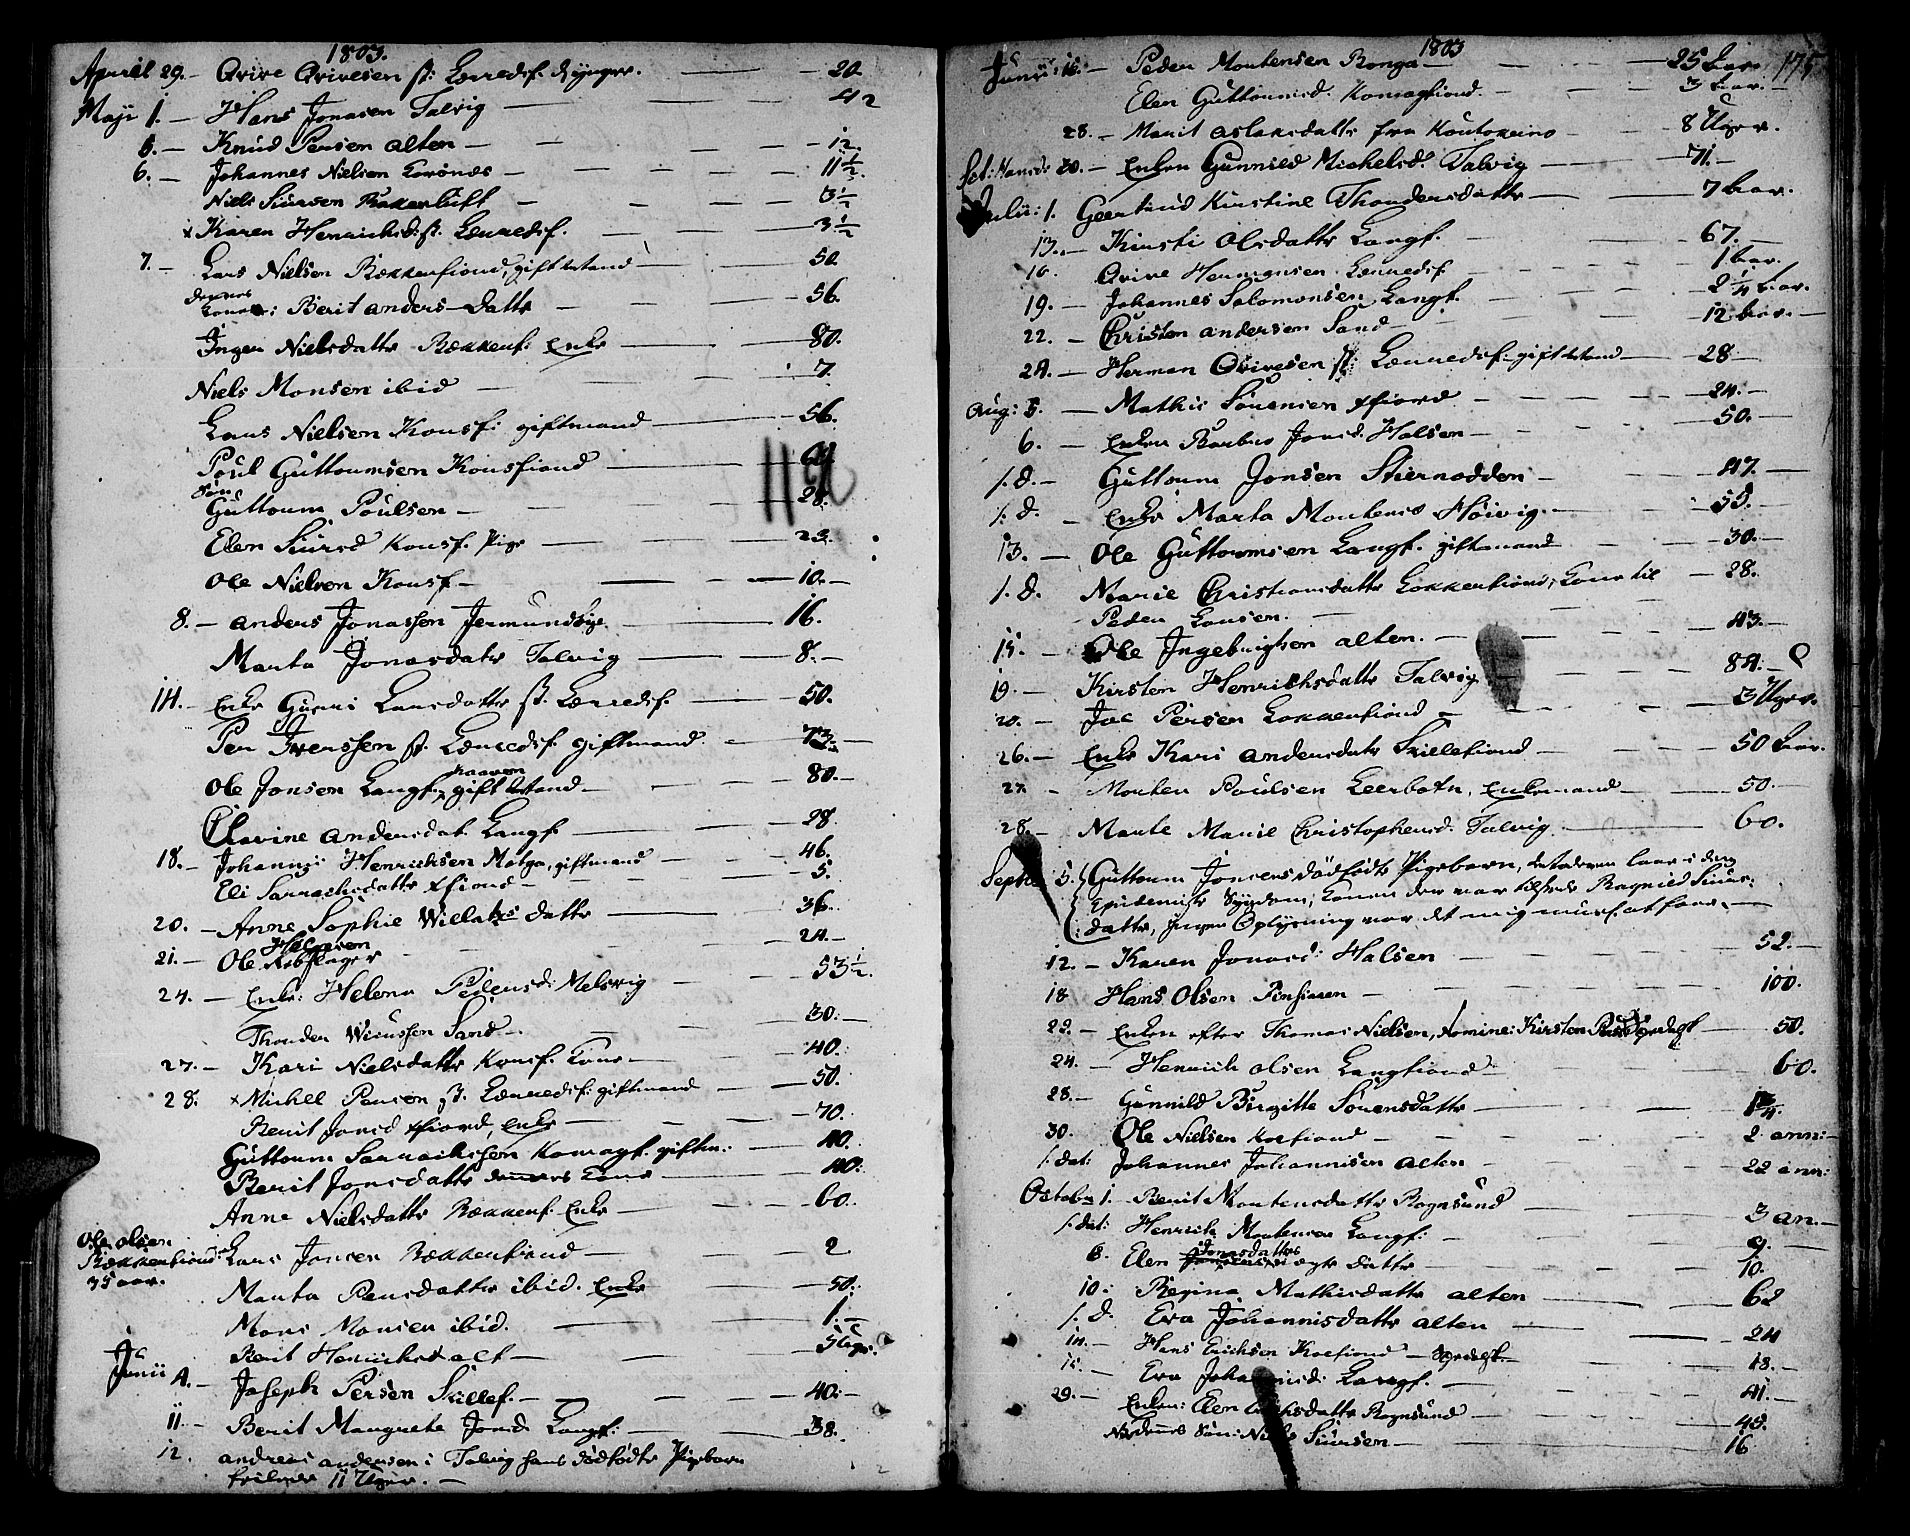 1803.
Aprill 29. — Qvive Qvivesen st: Lerredsf. d yngre. — 20
Maji 1. — Hans Jonasen Talvig — 42
5. — Knud Persen Alten — 12.
6. — Johannes Nielsen — 11½.
Niels Siursen — 3½
x Karen Henrichsd. st. Lerredsf. — 3½
7. — Lars Nielsen Rækkenfiord, gift — 50.
dennes Kone: Berit Anders-Datter — 56.
Inger Nielsdatter Rækkenf: Enke — 80.
Niels Monsen ibid — 7.
Lars Nielsen Korsf: giftmand — 56.
Poul Guttormsen Korsfiord
Søn
Guttorm Poulsen — 28.
Elen Siursd Korsf. Pige — 23.
Ole Nielsen Korsf — 10. —
8. — Anders Jonassen Jermundsbye — 16.
Marta Jonasdatter Talvig — 8. —
14. — Enke Gunri Larsdatter st. Lerredsf. — 50.
Per Iverssen st. Lerredsf. giftmand — 73. —
Ole Jonsen Langf. gift — 80. —
Andersdat. Langf — 28
18. — Johannis Henrichsen giftmand — 46.
Eli Sarrachsdatter xfiord — 5.
20. — Anne Sophie Willatzs datter — 36.
21. — Ole — 24. —
24. — Enke: Helena Pedersd: Melsvig — 53½.
Thorden Sand — 30. —
27. — Kari Nielsdatter Korsf. Kone — 40.
28. x Michel Persen st. Lerredsf. giftmand — 50.
Berit Jonsd xfiord, Enke — 70.
Guttorm Sarrachssen Komagf. giftm: — 40.
Berit Jonsdatter dennes Kone — 40:
Anne Nielsdatter Rækkenf. Enke — 60.
Ole Olsen
Rækkenfiord
35 aar.
Lars Jonsen Rækkenfiord — 2
Marta Persdatter ibid. Enke — 50:
Mons Monsen ibid. — 1. —
Berit Henrichsd Alt —
Junii 4. — Joseph Persen Skillef. — 40: —
11. — Berit Margrete Jonsd. Langf: — 38.
12. Andreas Andersen i Talvig hans dødfødte Pigebarn
11 Uger. —
1803
175
Junii 16. — Peder Mortensen Ronga — 25 aar
Elen Guttormsd. Komagfiord. — 3 aar. —
28. — Marit Aslaksdatter fra Koutokeino — 8 Uger.
Sct: Hansd: 30. — Enken Gunnild Michelsd. Talvig — 71. —
Julii: 1. Geertrud Kirstine Thordersdatter — 7 aar.
13. — Kirsti Olsdatter Langf. — 67. —
16. Qvive Hermansen Lerredsf. — 1 aar.
19. — Johannes Salomonsen Langf. — 2¼ aar.
22. — Christen Andersen Sand — 12 aar. —
24. — Herman Qvivesen st: Lerredsf: gift — 28 —
Aug: 5. — Mathis Sørensen xfiord — 24. —
6. — Enken Barbro Jonsd. Halsen — 50.
s. d. — Guttorm Jonsen Stiernodden — 47. —
s. d. — Enke Marta Mortens Høivig. — 55. —
13. — Ole Guttormsen Langf. giftmand — 30. —
s. d. Marie Christiansdatter Kone til — 28.
Peder Larsen. —
15. — Ole Ingebrigtsen Alten. — 43. —
19. — Kirsten Henrichsdatter Talvig — 84. —
20. — Joe Persen — 3 Uger.
26. — Enke Kari Andersdatter Skillefiord — 50 aar.
27 — Morten Poulsen Leerbotn, Enkemand — 50. —
28. — Marte Marie Christophersd. Talvig — 60.
Septbr 5. Guttorm Jonsens dødfødte Pigebarn, laae i den
Epidemiske Sygdom, Konen der var tilstede Ragnild Siurs:
datter, ingen Oplysning var det mig at faae. —
12. — Karen Jonasd: Halsen — 52. —
18 Hans Olsen — 100.
23. — Enken efter Thomas Nielsen, Nomine: Kirsten — 50.
24. — Henrich Olsen Langfiord — 60.
28. — Gunnild Birgitte Sørensdatter
30. Ole Nielsen Korsfiord — 2 ann: —
s. dat: Johannes Johannisen Alten — 22 ann:
Octobr 1. — Berit Mortensdatter Rognsund — 3 an. —
s. dat: Henrich Mortensen Langf: — 9. —
8. Elen Jonasdatters ægte datter — 10. —
10: — Regina Mathisdatter Alten — 62
s. d. Eva Johannisdatter Alten — 24
14. — Hans Erichsen Korsfiord — 13. —
15. — Eva Langf. — 41. —
29. — Enken: Elen Rognsund — 45. —
dennes Søn: Niels Siursen — 16